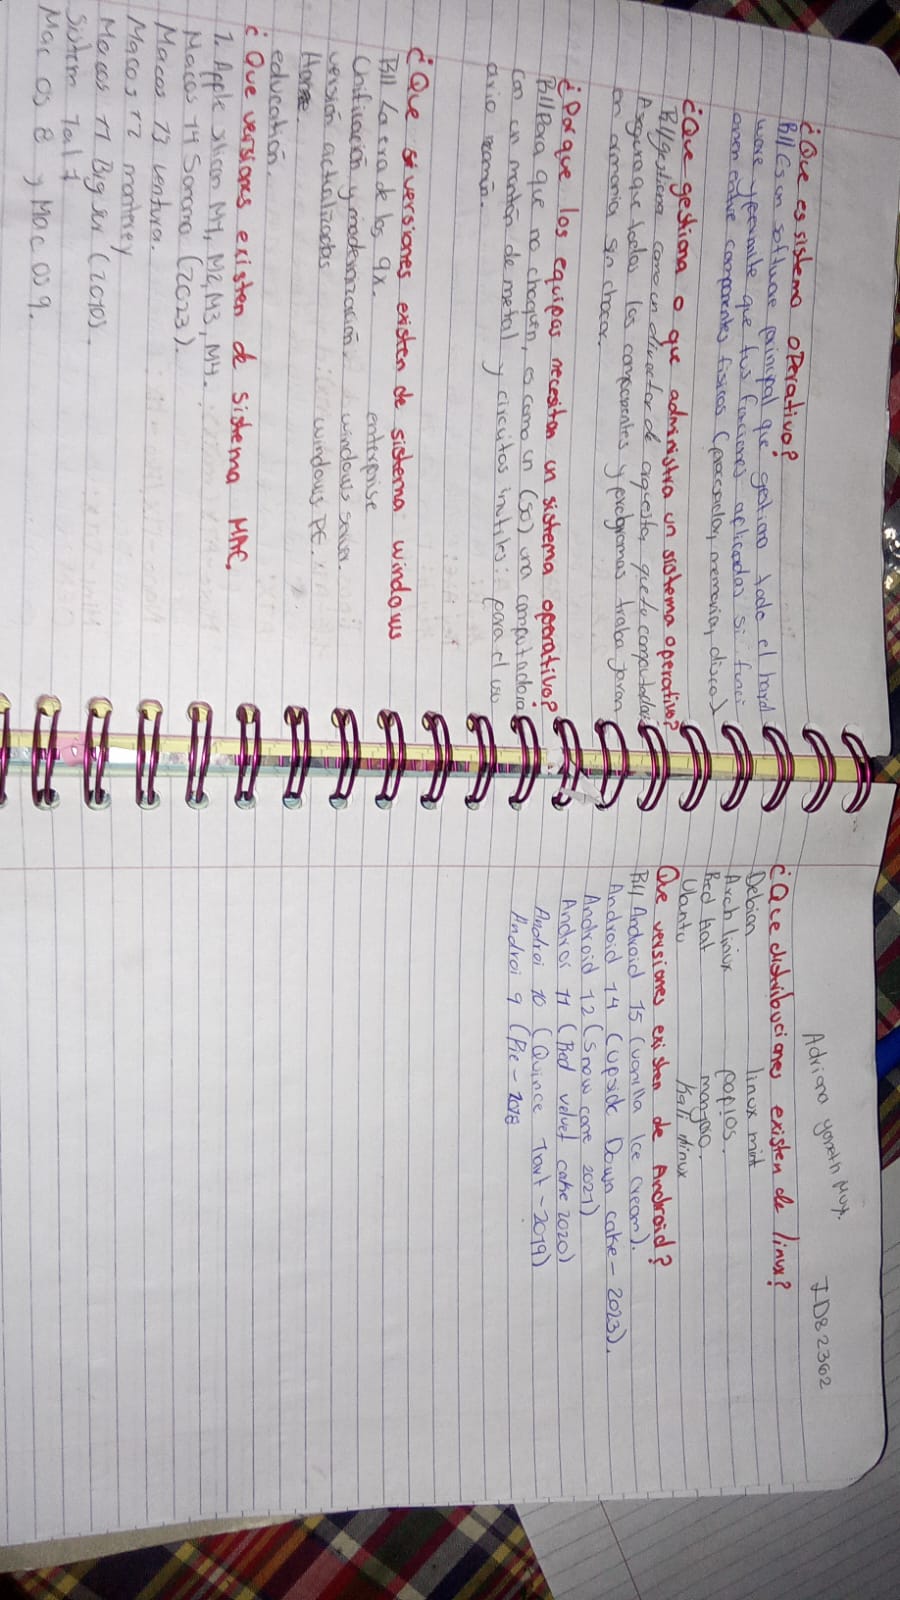 ¿Que es sistema operativo?
R// Es un software principal que gestiona todo el hard
ware y permite que tus funciones aplicadas si funci
onen entre componentes fisicos (procesador, memoria, disco)
¿Que gestiona o que administra un sistema operativo?
R// gestiona como un director de orquesta, que la computadora
Asegura que todos los componentes y programas trabajaran
en armonia, sin chocar.
¿Por que los equipos necesitan un sistema operativo?
R// Para que no choquen, es como un (so) una computadora
con un montón de metal y circuitos inutiles: para el usu
ario común.
¿Que versiones existen de sistema windows
R// La era de los 9x.
enterprise
Unificación y modernización.
windows server.
versión actualizadas
windows PE.
Home.
educatión.
¿Que versiones existen de sistema MAC.
1. Apple silicon M1, M2, M3, M4.
Macos 14 Sonoma (2023).
Macos 13 ventura.
Macos 12 monterey
Macos 11 Big sur (2010).
Sistema 1 al 7
Mac os 8 y Mac os 9.
Adriana yaneth
ID82362
¿Que distribuciones existen de linux?
Debian linux mint
Arch linux pop!os.
Red hat manjaro.
Ubantu Kali linux
Que versiones existen de Android?
R// Android 15 (vanilla Ice cream).
Android 14 (upside Down cake - 2023).
Android 12 (snow cone 2021)
Androi 11 (Red velvet cake 2020)
Androi 10 (Quince Tart - 2019)
Androi 9 (Pie - 2018